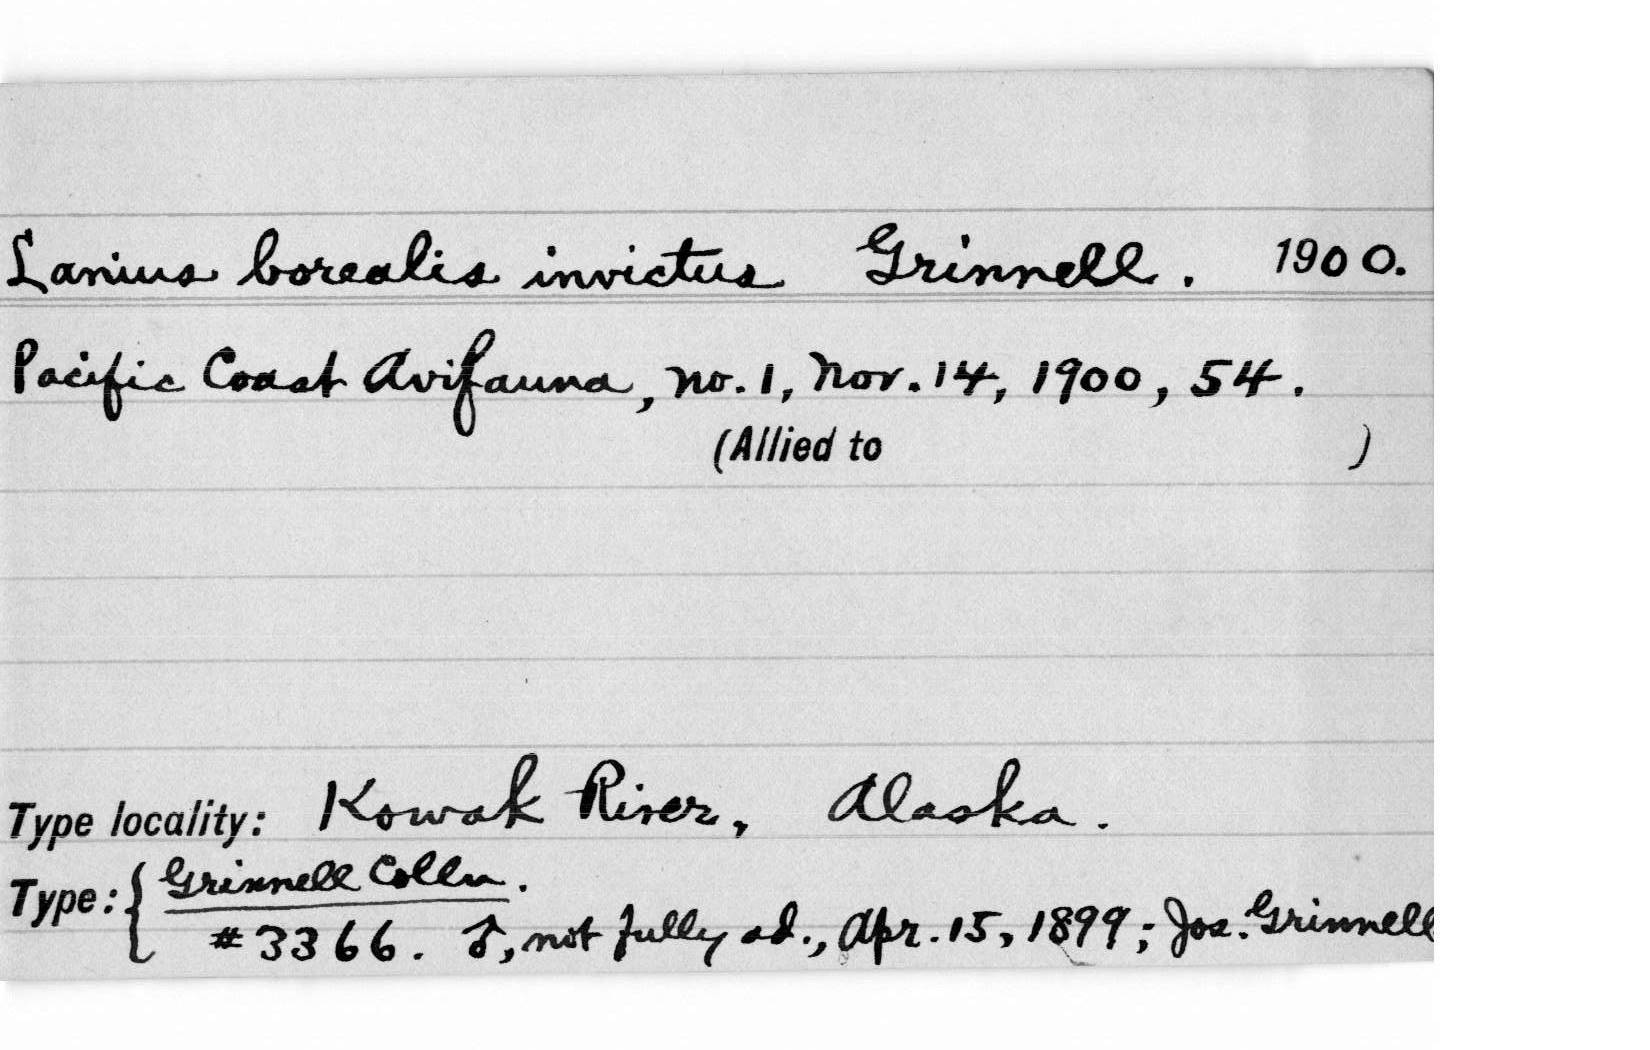 Lanius borealis invictus Grinnell. 1900.
Pacific Coast Avifauna, no. 1, Nov. 14, 1900, 54.
(Allied to )
Type locality: Kowak River, Alaska.
Type: { Grinnell Colln.
#3366. ♂, not fully ad., Apr. 15, 1899; Jos. Grinnell